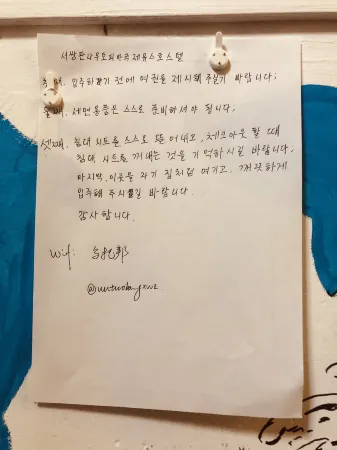 서쌍판나우토피아국제유스호스텔
첫째, 입주하기 전에 여권을 제시해 주실기 바랍니다;
둘째, 세면용품은 스스로 준비하셔야 됩니다;
셋째, 침대 시트를 스스로 뜯어내고, 체크아웃 할 때
침대 시트를 꺼내는 것을 기억하시길 바랍니다.
마지막, 이곳을 자기 집처럼 여기고, 깨끗하게
입주해 주시길 바랍니다.
감사합니다.
Wifi: 乌托邦